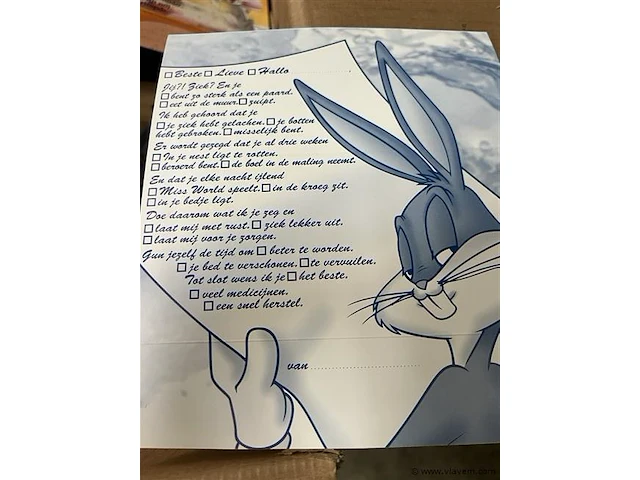 ☐ Beste ☐ Lieve ☐ Hallo ....................
Jij?! Ziek? En je
☐ bent zo sterk als een paard.
☐ eet uit de muur. ☐ zuipt.
Ik heb gehoord dat je
☐ je ziek hebt gelachen. ☐ je botten
hebt gebroken. ☐ misselijk bent.
Er wordt gezegd dat je al drie weken
☐ In je nest ligt te rotten.
☐ beroerd bent. ☐ de boel in de maling neemt.
En dat je elke nacht ijlend
☐ Miss World speelt. ☐ in de kroeg zit.
☐ in je bedje ligt.
Doe daarom wat ik je zeg en
☐ laat mij met rust. ☐ ziek lekker uit.
☐ laat mij voor je zorgen.
Gun jezelf de tijd om ☐ beter te worden.
☐ je bed te verschonen. ☐ te vervuilen.
Tot slot wens ik je ☐ het beste.
☐ veel medicijnen.
☐ een snel herstel.
van ..............................
© www.vlavem.com